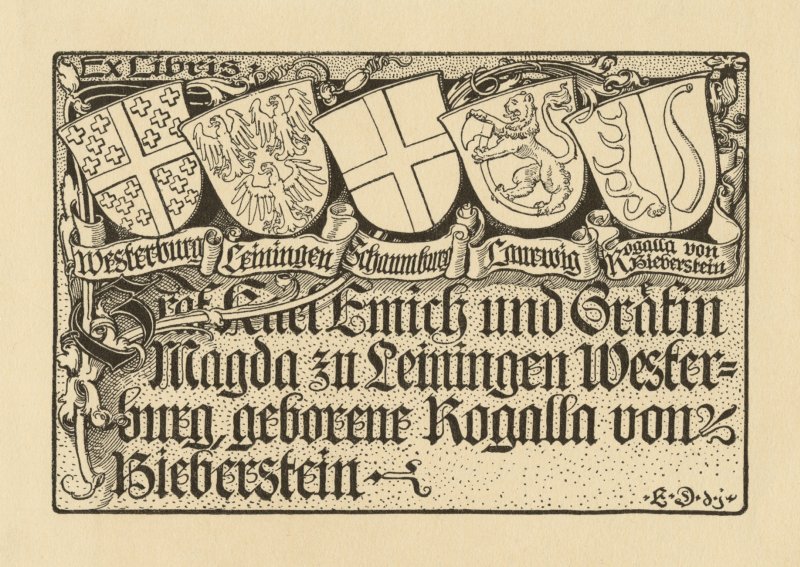 Ex Libris:
Westerburg
Leiningen
Schaumburg
Laurwig
Rogalla von
Bieberstein
Graf Karl Emich und Gräfin
Magda zu Leiningen Wester=
burg, geborene Rogalla von
Bieberstein